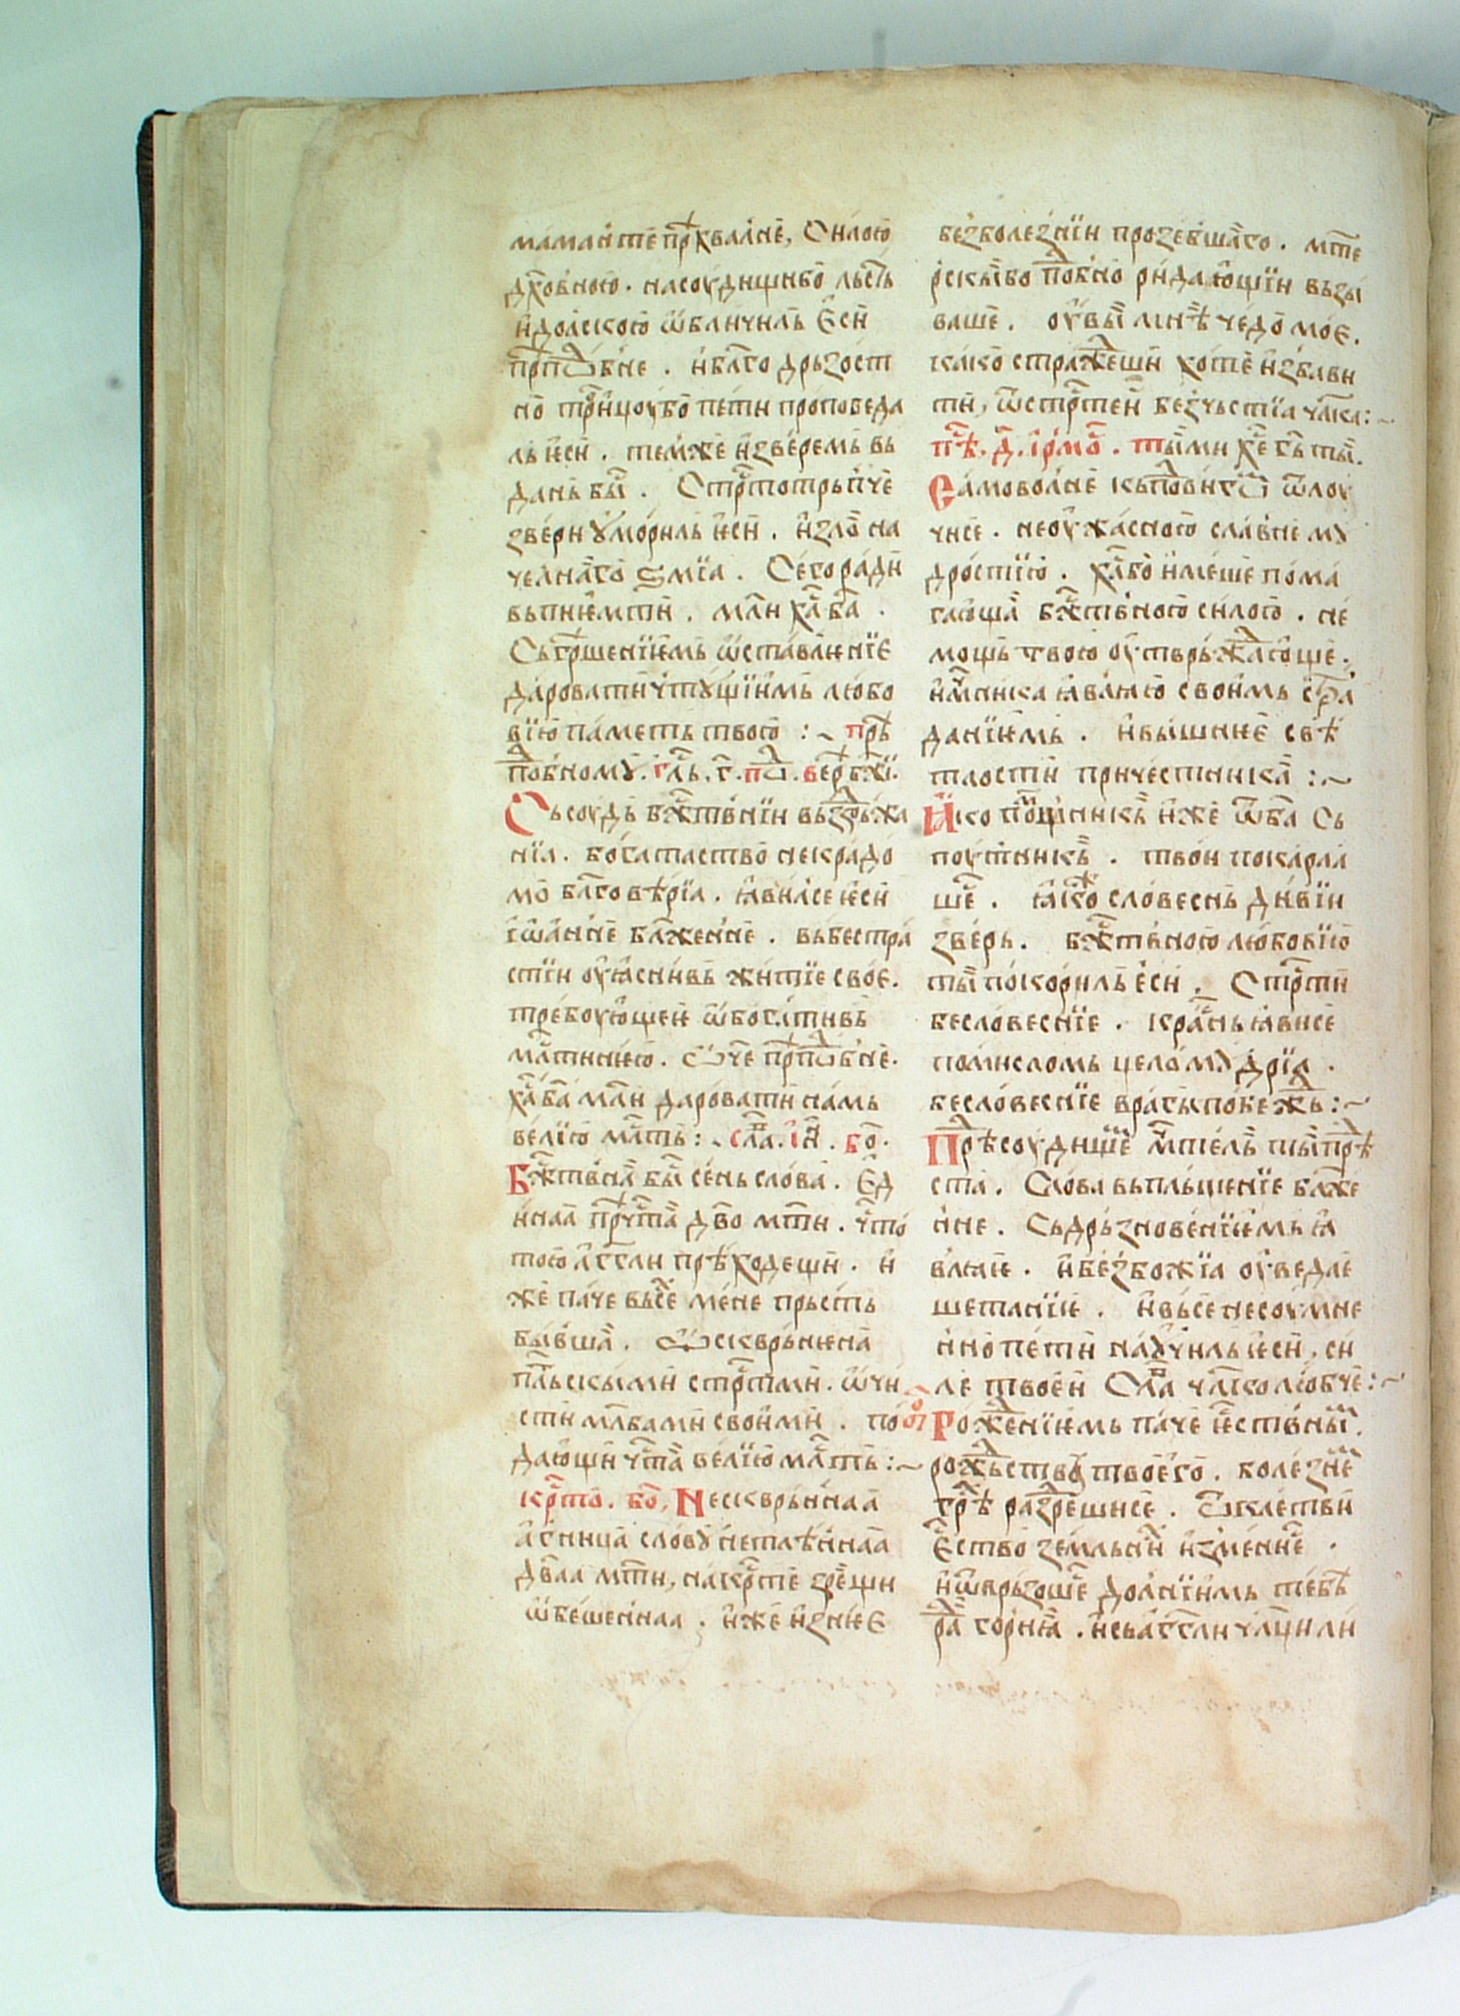 маманте прⷯвалне, Силою
дх҃овною. на соудищи бо льсть
идольскою ѿбличиль Еси
прпⷣобне. и благо дрьзост
но трⷪ҇ицоу бо пети проповеда
ль ѥси. темже изверемь вь
дань бы. Стрⷭ҇тотрьпче
звери ꙋмориль ѥси. и зло на
челнаго ѕмїа. Сего ради
вьпиѥмти. мл҃и хⷭ҇а ба҃ .
Сьгрⷮшенїѥмь ѡставлѥнїе
даровати чтꙋщїимь любо
вїю паметь твою :~ прⷣѣ
пⷣобномꙋ. глⷭ҇ь. г҃. пⷣо. вечⷬ҇ бж҃їи.
Сьсоудь бжⷭ҇твнїи вьздрьжа
нїа. богатаство некрадо
мо блг҃овѣрїа. ꙗвилсе ѥси
іѡанне блаженне. вь бестра
стїи оуꙗснивь житїе свое.
требоующеѥ ѡбогативь
млⷭ҇тинѥю. Ѡче прпⷣобне.
хⷭ҇а ба҃ мл҃и даровати намь
велїю млⷭ҇ть :~ слаⷡ. і нн҃ꙗ. боⷢ.
Бжⷭ҇твнаа бы сень слова. Ед
инаа прⷱ҇тⷭаа дв҃о мт҃и. чⷭ҇то
тою аг҃гли прѣходещи. и
же паче вьсе мене прьсть
бывша. Ѡсквръненаа
пльⷮскыми стрⷭ҇тми. ѡчи
сти мл҃твами своими. по
дающи чⷭ҇таа велїю млⷭ҇ть :~
крⷭ҇то. боⷢ, Нескврьннаа
агница словꙋ нетлѣннаа
дв҃аа мт҃и, на крⷭ҇те зрещи
ѡбешеннаа . иже из нѥе
безболезнїи прозебшаго . мт҃е
рскы бо поⷣбно ридающїи вьзы
ваше . оувы мнѣ чедо мое.
како стражⷣеши хоте избави
ти, ѿ стрⷭ҇теи безчьстїа чл҃ка :~
пѣⷭ҇. д҃. ірмоⷭ҇ . ты ми хⷭ҇е г҃ь ты.
Самоволне кь поⷣвигѡⷨ ѿлоу
чисе . неоужасною славне мꙋ
дростїю . хⷭ҇а бо имеше пома
гающа бжⷭ҇твною силою . не
мощь твою оутврьжⷣающе .
имⷱ҇ника ꙗвлꙗю своимь стра
данїѥмь . и вышнѥ свѣ
тлости причестника :~
Ꙗко помощникь иже ѿ ба҃ сь
поутникь . твои покарла
ше . ꙗко словеснь дивїи
зверь. бжⷭ҇твною любовїю
ты покориль еси . Стрⷭ҇ти
бесловеснїе . красⷭ҇нь ꙗвисе
помисломь целомꙋдрїа .
бесловеснїе врагы побежⷣь :~
Прⷣѣ соудище мⷱ҇тель ты прⷣѣ
ста . Слова вьпльщенїе блаже
нне . Сь дрьзновенїѥмь ꙗ
влꙗѥ . и безбожїа оуведле
шетанїѥ . и вьсе несоумне
нно пети наꙋчиль ѥси, си
ле твоѥи Слаⷡ чл҃колюбче :~
бо Рожⷣенїѥмь паче ѥстⷭвны .
рожⷣьства твоего . болезне
грѣⷯ разⷣрешисе . Ѿ клетви
Ество земльныⷯ изменнѥ .
и ѿврьзоше долнїимь тебѣ
раⷣ горнꙗа . и сь аг҃гли чл҃ци ли